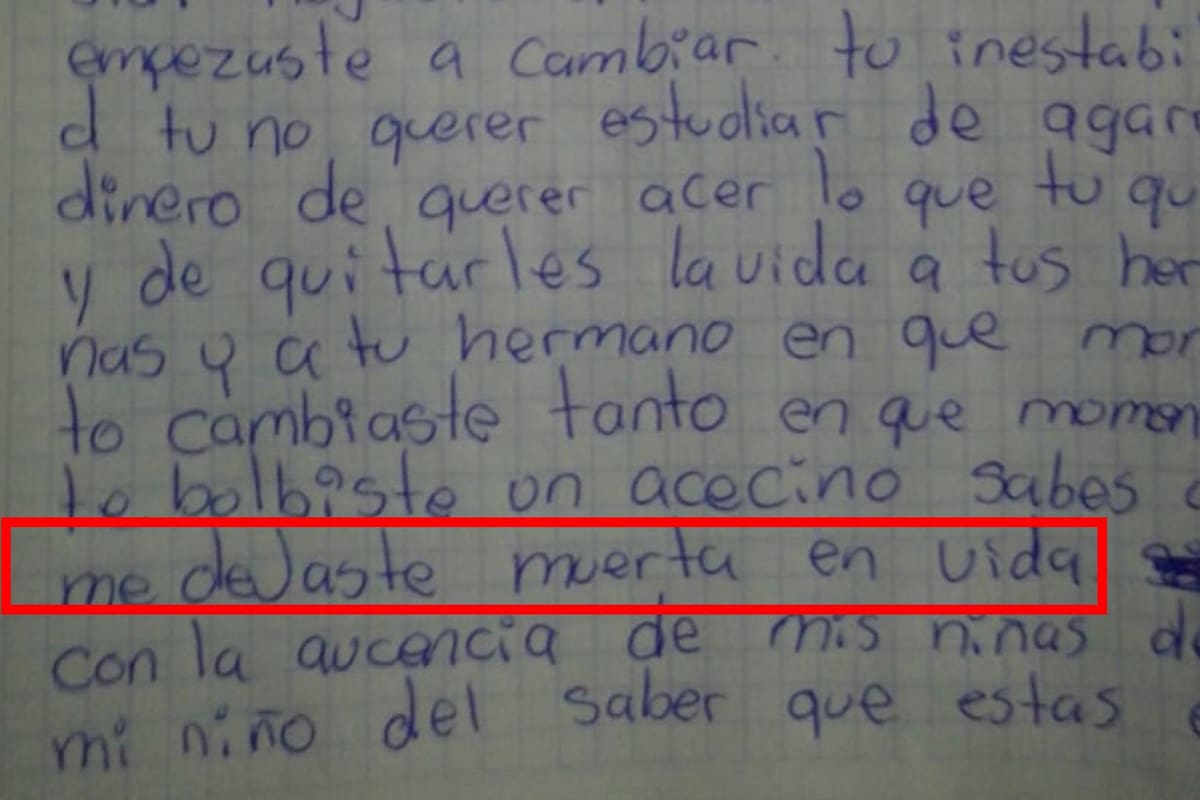 empezaste a cambiar. tu inestabi
d tu no querer estudiar de agar
dinero de querer acer lo que tu qu
y de quitarles la vida a tus her
nas y a tu hermano en que mom
to cambiaste tanto en que momen
te bolbiste un acecino sabes
me dejaste muerta en vida
con la aucencia de mis niñas de
mi niño del saber que estas